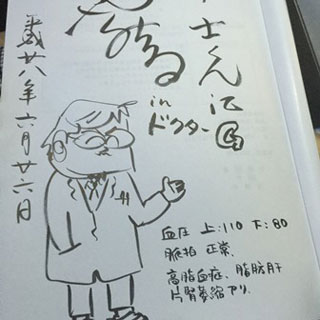 士くん江
in
ドクター
平成廿八年六月廿六日
血圧 上:110 下:80
脈拍 正常.
高脂血症、脂肪肝
片腎萎縮アリ.